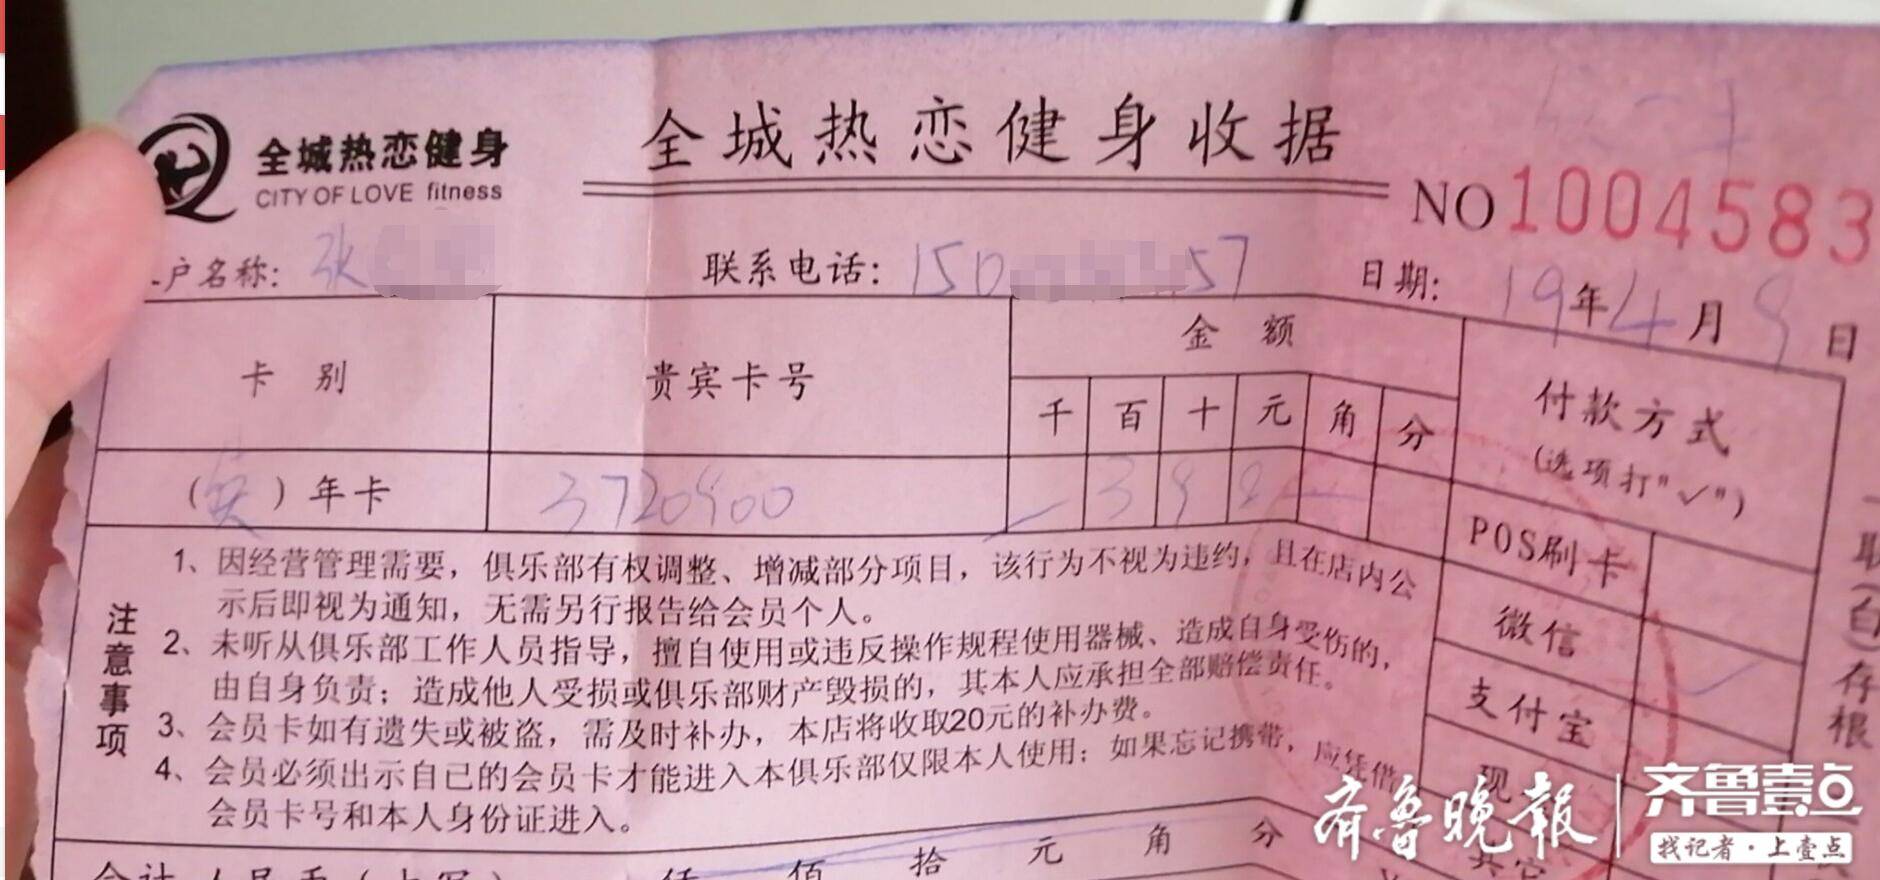 全城热恋健身
CITY OF LOVE fitness
全城热恋健身收据
NO 1004583
户名称: 张
联系电话: 150 57
日期: 19年4月9日
卡别 贵宾卡号 金额 付款方式
(选项打"✓")
千 百 十 元 角 分
( )年卡 3720900
POS刷卡
微信
支付宝
现
其它
注意事项
1、因经营管理需要，俱乐部有权调整、增减部分项目，该行为不视为违约，且在店内公
示后即视为通知，无需另行报告给会员个人。
2、未听从俱乐部工作人员指导，擅自使用或违反操作规程使用器械、造成自身受伤的，
由自身负责；造成他人受损或俱乐部财产毁损的，其本人应承担全部赔偿责任。
3、会员卡如有遗失或被盗，需及时补办，本店将收取20元的补办费。
4、会员必须出示自己的会员卡才能进入本俱乐部仅限本人使用；如果忘记携带，应凭借
会员卡号和本人身份证进入。
合计人民币(大写) 仟 佰 拾 元 角 分 ¥
存根
齐鲁晚报
齐鲁壹点
找记者·上壹点